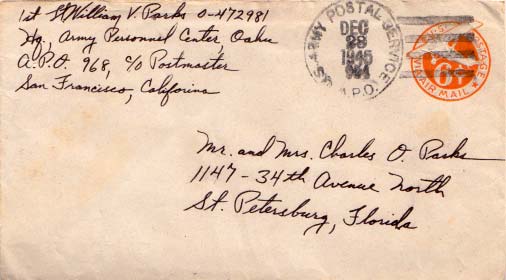 1st Lt William V. Parks O-472981
Hq, Army Personnel Center, Oahu
A.P.O. 968, c/o Postmaster
San Francisco, Califorina
U.S. ARMY POSTAL SERVICE
DEC
28
1945
A.P.O.
U.S. POSTAGE
6¢
VIA AIR MAIL
Mr. and Mrs. Charles O. Parks
1147 - 34th Avenue North
St. Petersburg, Florida